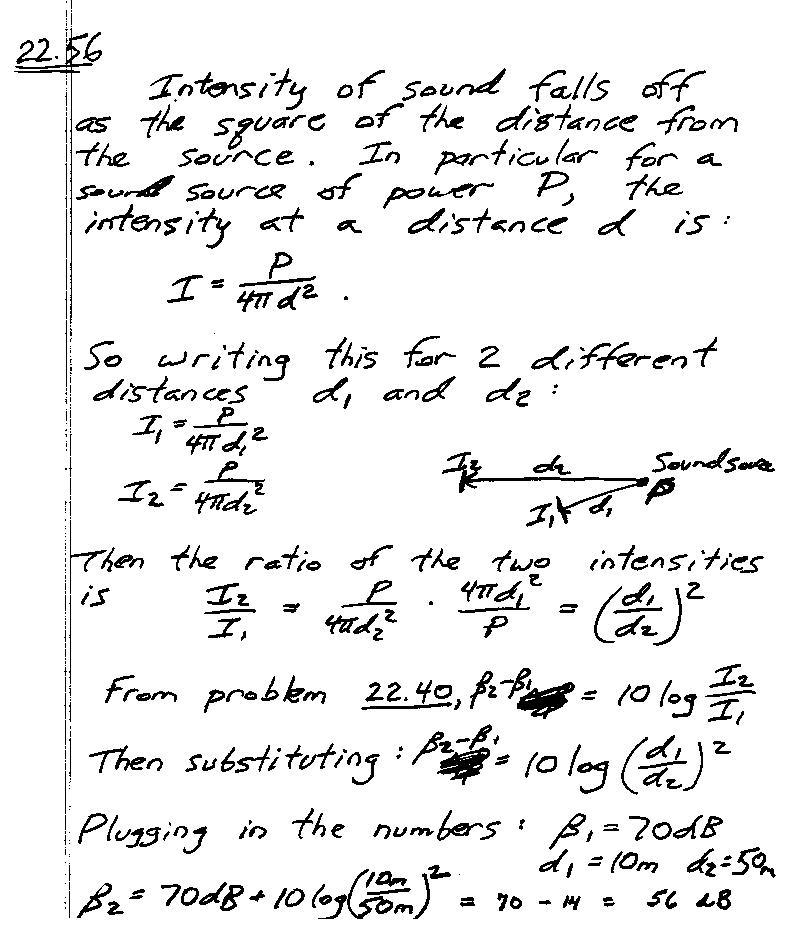 22.56
Intensity of sound falls off
as the square of the distance from
the source. In particular for a
sound source of power P, the
intensity at a distance d is:
I = P/(4πd²).
So writing this for 2 different
distances d₁ and d₂:
I₁ = P/(4πd₁²)
I₂ = P/(4πd₂²)
I₂ d₂ Sound source
I₁ d₁ P
Then the ratio of the two intensities
is I₂/I₁ = P/(4πd₂²) · 4πd₁²/P = (d₁/d₂)²
From problem 22.40, β₂-β₁ = 10 log I₂/I₁
Then substituting: β₂-β₁ = 10 log (d₁/d₂)²
Plugging in the numbers: β₁ = 70dB
d₁ = 10m d₂ = 50m
β₂ = 70dB + 10 log(10m/50m)² = 70 - 14 = 56 dB